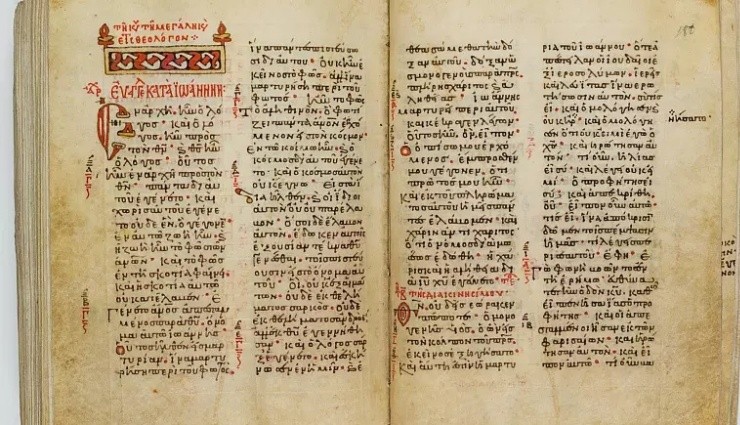 τῇ κυ τῇ μεγάλη κυ
εἰς θεολόγον
ευαγγ κατα ϊωαννην
Ἐν ἀρχῇ ἦν ὁ λό
γος· καὶ ὁ λό
γος ἦν προς
τὸν θν· κ θς ἦν
ὁ λόγος· οὗτος
ἦν ἐν ἀρχῇ πρὸς τὸν
θν· πάντα δι αυ
τοῦ ἐγένετο· καὶ
χωρὶς αὐτοῦ ἐγένε
το οὐδὲ ἕν· ὃ γέγονεν
ἐν αὐτῶ ζωὴ ἦν κ
ἡ ζωὴ ἦν τὸ φῶς τῶν
ἀνων· καὶ τὸ φῶς
ἐν τῇ σκοτία φαίνει
καὶ ἡ σκοτία αὐτὸ
οὐ κατέλαβεν· Ἐ
γένετο ἄνος ἀπεσταλ
μένος παρὰ θυ· ὄνο
μα αὐτῶ ἰωάννης
Οὗτος ἦλθεν εἰς μαρ
τυρίαν· ἵνα μαρτυ
ρήση περὶ τοῦ φωτός
ἵνα πάντες πιστεύσω
σι δι αὐτοῦ· οὐκ ἦν ἐ
κεῖνος τὸ φῶς· ἀλλ ἵνα
μαρτυρήση περὶ τοῦ
φωτός· ἦν τὸ φῶς
τὸ ἀληθινόν· ὃ φωτί
ζει πάντα ἄνον ἐρχό
μενον εἰς τὸν κόσμον
ἐν τῶ κόσμω ἦν· κ
ὁ κόσμος δι αὐτοῦ ἐγένε
το· καὶ ὁ κόσμος αὐτὸν
οὐκ ἔγνω· εἰς τὰ ἴδι
α ἦλθεν· κ οἱ ἴδιοι
αὐτὸν οὐ παρέλα
βον· ὅσοι δὲ ἔλαβον
αὐτόν· ἔδωκεν αὐτοῖς
ἐξουσίαν τέκνα θυ
γενέσθαι· τοῖς πιστεύ
ουσιν εἰς τὸ ὄνομα αὐ
τοῦ· οἳ οὐκ ἐξ αἱμά
των οὐδὲ ἐκ θελή
ματος σαρκός· οὐδὲ
ἐκ θελήματος ἀνδρός
ἀλλ ἐκ θυ ἐγεννήθη
σαν· καὶ ὁ λόγος σὰρξ
ἐγένετο· καὶ ἐσκή
νωσεν ἐν ἡμῖν· κ ἐ
θεασάμεθα τὴν δό
ξαν αὐτοῦ· δόξαν ὡς
μονογενοῦς παρὰ πρς
πλήρης χάριτος κ ἀ
ληθείας· ἰωάννης
μαρτυρεῖ περὶ αὐτοῦ
καὶ κέκραγεν λέγων
οὗτος ἦν· ὃν εἶπον
ὁ ὀπίσω μου ἐρχό
μενος· ἔμπροσθέν
μου γέγονεν· ὅτι
πρῶτός μου ἦν
καὶ ἐκ τοῦ πληρώμα
τος αὐτοῦ ἡμεῖς πάν
τες ἐλάβομεν· καὶ
χάριν ἀντὶ χάριτος
ὅτι ὁ νόμος διὰ μω
σέως ἐδόθη· ἡ χά
ρις κ ἡ ἀλήθεια δι
ὰ ιυ χυ ἐγένετο
τῆς διακινησίμου
Θν οὐδεὶς ἑώρακεν
πώποτε· ὁ μονο
γενὴς υἱός· ὁ ὢν εἰς
τὸν κόλπον τοῦ πρς
ἐκεῖνος ἐξηγήσατο
Καὶ αὕτη ἐστὶν ἡ μαρτυ
ρία τοῦ ἰωάννου· ὅτε ἀ
πέστειλαν οἱ ἰουδαῖοι ἐ
ξ ἱεροσολύμων· ἱερεῖς
καὶ λευίτας ἵνα ἐρω
τήσωσιν αὐτόν· σὺ τίς
εἶ· καὶ ὡμολόγησεν κ
οὐκ ἠρνήσατο· καὶ ὡμολόγη
σεν ὅτι οὐκ εἰμὶ ἐγὼ ὁ
χς· καὶ ἠρώτησαν αὐ
τόν· τί οὖν· ἠλίας
εἶ σύ· καὶ λέγει οὐκ εἰ
μί· ὁ προφήτης εἶ
σύ· καὶ ἀπεκρίθη οὔ
εἶπον οὖν αὐτῶ
τίς εἶ· ἵνα ἀπόκρισιν
δῶμεν τοῖς πέμψασιν
ἡμᾶς· τί λέγεις πε
ρὶ σεαυτοῦ· ἔφη· ἐ
γὼ φωνὴ βοῶντος ἐν
τῇ ἐρήμω· εὐθύνατε
τὴν ὁδὸν κυ· καθὼς
εἶπεν ἠσαΐας ὁ προ
φήτης· καὶ οἱ ἀπε
σταλμένοι ἦσαν ἐκ τῶν
φαρισαίων· καὶ ἠρώ
τησαν αὐτόν· καὶ εἶ
πον αὐτῶ· τί οὖν